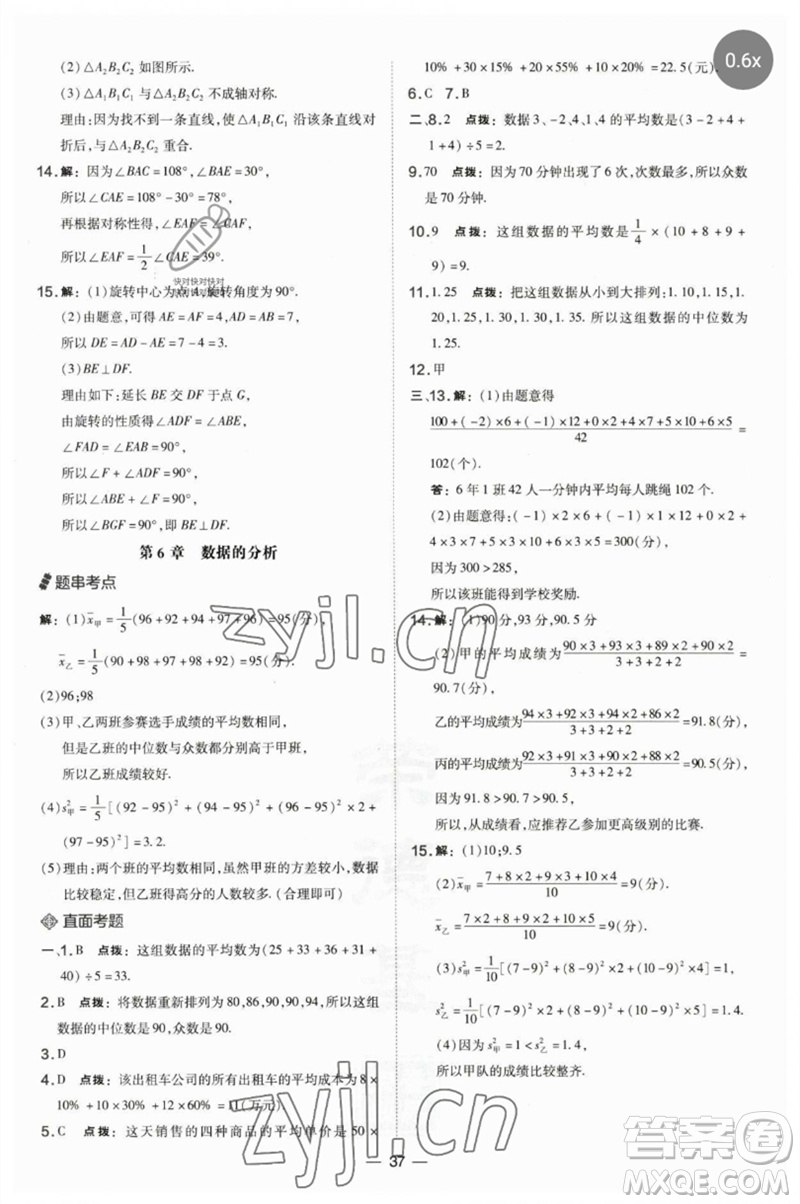 (2)△A₂B₂C₂ 如图所示.
(3)△A₁B₁C₁ 与△A₂B₂C₂ 不成轴对称.
理由:因为找不到一条直线,使△A₁B₁C₁ 沿该条直线对
折后,与△A₂B₂C₂ 重合.
14.解:因为∠BAC=108°,∠BAE=30°,
所以∠CAE=108°-30°=78°.
再根据对称性得,∠EAF=∠CAF,
所以∠EAF=1/2∠CAE=39°.
15.解:(1)旋转中心为点A,旋转角度为90°.
(2)由题意,可得AE=AF=4,AD=AB=7,
所以DE=AD-AE=7-4=3.
(3)BE⊥DF.
理由如下:延长BE交DF于点G,
由旋转的性质得∠ADF=∠ABE,
∠FAD=∠EAB=90°,
所以∠F+∠ADF=90°,
所以∠ABE+∠F=90°,
所以∠BGF=90°,即BE⊥DF.
第6章 数据的分析
题串考点
解:(1)x̄甲=1/5(96+92+94+97+96)=95(分),
x̄乙=1/5(90+98+97+98+92)=95(分).
(2)96;98
(3)甲、乙两班参赛选手成绩的平均数相同,
但是乙班的中位数与众数都分别高于甲班,
所以乙班成绩较好.
(4)s²甲=1/5[(92-95)²+(94-95)²+(96-95)²×2+
(97-95)²]=3.2.
(5)理由:两个班的平均数相同,虽然甲班的方差较小,数据
比较稳定,但乙班得高分的人数较多.(合理即可)
直面考题
一、1.B 点拨:这组数据的平均数为(25+33+36+31+
40)÷5=33.
2.B 点拨:将数据重新排列为80,86,90,90,94,所以这组
数据的中位数是90,众数是90.
3.D
4.A 点拨:该出租车公司的所有出租车的平均成本为8×
10%+10×30%+12×60%=11(万元).
5.C 点拨:这天销售的四种商品的平均单价是50×
10%+30×15%+20×55%+10×20%=22.5(元).
6.C 7.B
二、8.2 点拨:数据3,-2,4,1,4的平均数是(3-2+4+1
+4)÷5=2.
9.70 点拨:因为70分钟出现了6次,次数最多,所以众数
是70分钟.
10.9 点拨:这组数据的平均数是1/4×(10+8+9+
9)=9.
11.1.25 点拨:把这组数据从小到大排列:1.10,1.15,
1.20,1.25,1.30,1.30,1.35.所以这组数据的中位数为
1.25.
12.甲
三、13.解:(1)由题意得
(100+(-2)×6+(-1)×12+0×2+4×7+5×10+6×5)/42=
102(个).
答:6年1班42人一分钟内平均每人跳绳102个.
(2)由题意得:
4×7+5×10+6×5-1×12-2×6=84.
因为300>285,
所以该班能得到学校奖励.
14.解:(1)90分,93分,90.5分
(2)甲的平均成绩为(90×3+93×3+89×2+90×2)/(3+3+2+2)=
90.7(分),
乙的平均成绩为(94×3+92×3+94×2+86×2)/(3+3+2+2)=91.8(分),
丙的平均成绩为(92×3+91×3+90×2+88×2)/(3+3+2+2)=90.5(分),
因为91.8>90.7>90.5,
所以,从成绩看,应推荐乙参加更高级别的比赛.
15.解:(1)10;9.5
(2)x̄甲=(7+8×2+9×3+10×4)/10=9(分),
x̄乙=(7×2+8+9×2+10×5)/10=9(分).
(3)s²甲=1/10[(7-9)²+(8-9)²×2+(10-9)²×4]=1,
s²乙=1/10[(7-9)²×2+(8-9)²+(10-9)²×5]=1.4.
(4)因为s²甲=1<s²乙=1.4,
所以甲队的成绩比较整齐.
37
0.6x
快对快对快对
zyjl.cn
zyjl.cn
答案圈
MXQE.COM